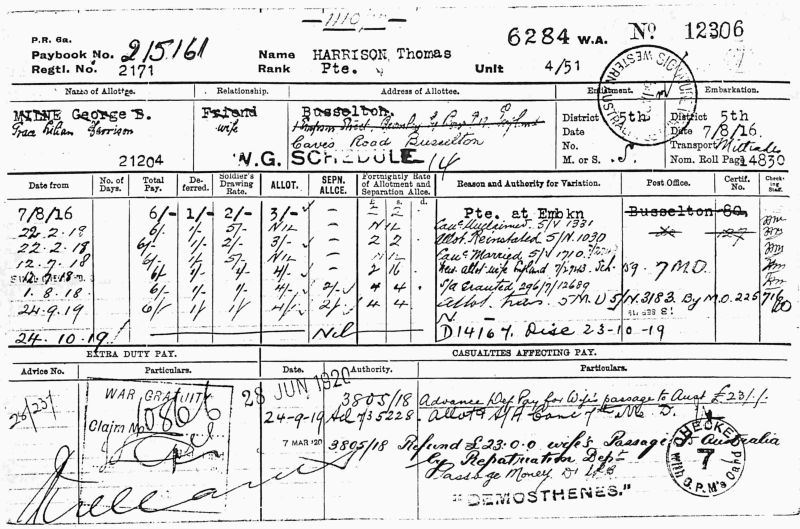 1110
P.R. 6a.
Paybook No. 215161
Regtl. No. 2171
Name HARRISON, Thomas
Rank Pte.
6284 W.A. No 12306
Unit 4/51
Name of Allottee. Relationship. Address of Allottee. Enlistment. Embarkation.
MILNE George B. Friend Busselton. District 5th District 5th
Grace Lilian Harrison wife Caves Road Busselton
Date Date 7/8/16.
No. Transport Miltiades
21204 N.G. SCHEDULE 14 M. or S. S. Nom. Roll Page 14830
Date from No. of Days. Total Pay. Deferred. Soldier's Drawing Rate. ALLOT. SEPN. ALLCE. Fortnightly Rate of Allotment and Separation Allce. Reason and Authority for Variation. Post Office. Certif. No. Checking Staff.
£ s. d.
7/8/16 6/- 1/- 2/- 3/- - 2 2 - Pte. at Embkn Busselton 80.
22.2.18 6/- 1/- 5/- Nil - Nil Canc Unclaimed S/V 1331
22.2.18 6/- 1/- 2/- 3/- - 2 2 Allot. Reinstated S/N. 1030
12.7.18 6/- 1/- 5/- Nil - Nil Canc Married S/V 1710.
12.7.18 6/- 1/- 1/- 4/- - 2 16 allot wife England 7/2743. Sch. 59. 7 M.D.
1.8.18 6/- 1/- 1/- 4/- 2/- 4 4 S/a Granted 296/7/12689
24.9.19 6/- 1/- 1/- 4/- 2/- 4 4 allot. trans. 5 M.D S/N.3183. By M.O. 225
24.10.19 Nil D14167. Disc 23-10-19
EXTRA DUTY PAY. CASUALTIES AFFECTING PAY.
Advice No. Particulars. Date. Authority. Particulars.
WAR GRATUITY
Claim No.
28 JUN 1920
3805/18 Advance Def Pay for Wife's passage to Aust £23/-/-
24-9-19 Ad 7/35228. Allot & S/A Canc 7th M. D.
7 MAR '20 3805/18 Refund £23.0.0 wife's Passage to Australia
by Repatriation Dept
Passage Money
"DEMOSTHENES."
CHECKED
7
With D.P.M's Card